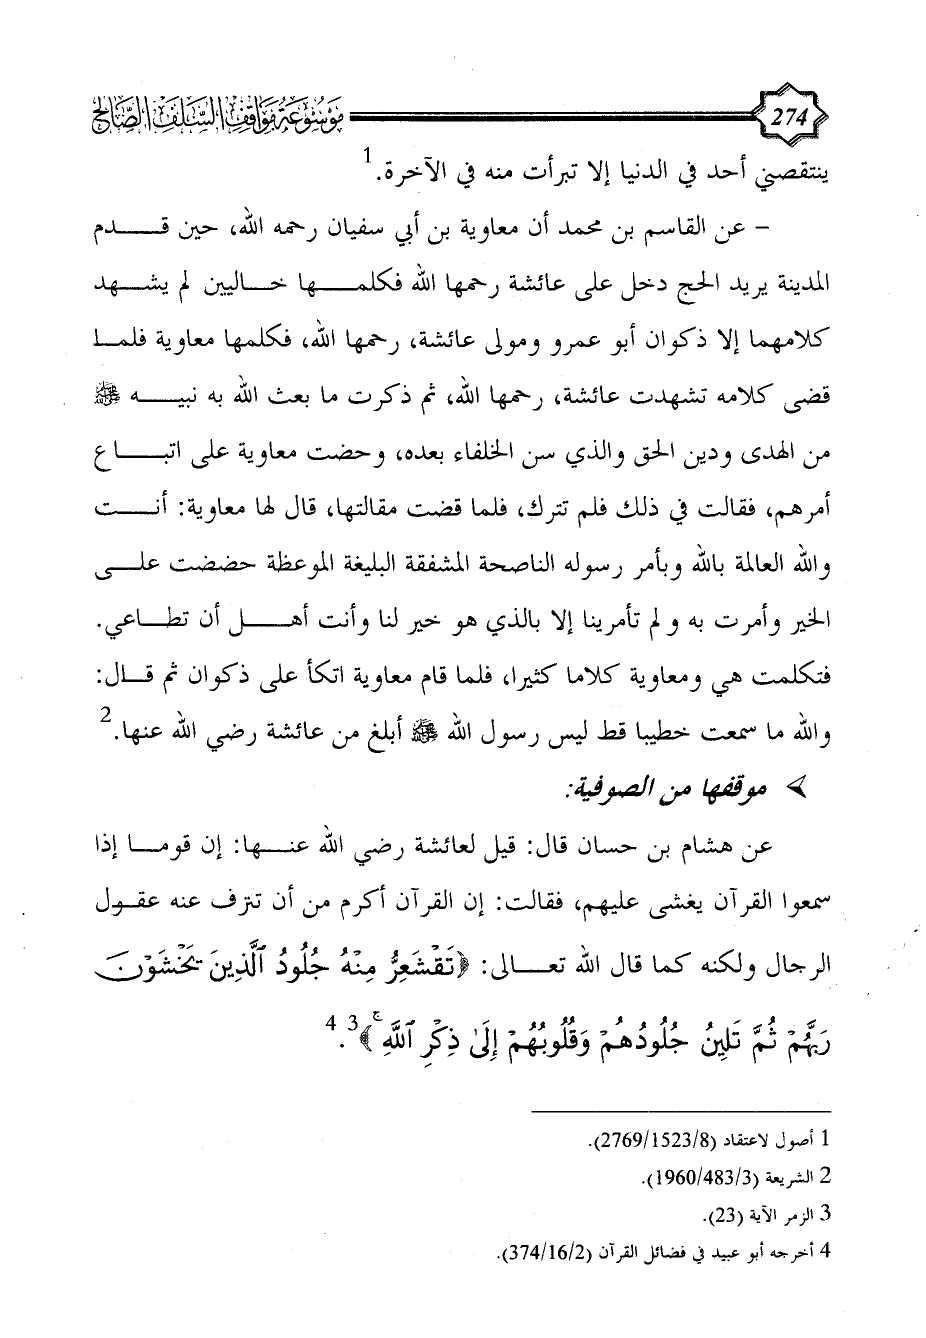 274 موسوعة مواقف السلف الصالح
ينتقصني أحد في الدنيا إلا تبرأت منه في الآخرة.1
– عن القاسم بن محمد أن معاوية بن أبي سفيان رحمه الله، حين قدم
المدينة يريد الحج دخل على عائشة رحمها الله فكلمها خاليين لم يشهد
كلامهما إلا ذكوان أبو عمرو ومولى عائشة، رحمها الله، فكلمها معاوية فلما
قضى كلامه تشهدت عائشة، رحمها الله، ثم ذكرت ما بعث الله به نبيه ﷺ
من الهدى ودين الحق والذي سن الخلفاء بعده، وحضت معاوية على اتباع
أمرهم، فقالت في ذلك فلم تترك، فلما قضت مقالتها، قال لها معاوية: أنت
والله العالمة بالله وبأمر رسوله الناصحة المشفقة البليغة الموعظة حضضت على
الخير وأمرت به ولم تأمرينا إلا بالذي هو خير لنا وأنت أهل أن تطاعي.
فتكلمت هي ومعاوية كلاما كثيرا، فلما قام معاوية اتكأ على ذكوان ثم قال:
والله ما سمعت خطيبا قط ليس رسول الله ﷺ أبلغ من عائشة رضي الله عنها.2
➢ موقفها من الصوفية:
عن هشام بن حسان قال: قيل لعائشة رضي الله عنها: إن قوما إذا
سمعوا القرآن يغشى عليهم، فقالت: إن القرآن أكرم من أن تنزف عنه عقول
الرجال ولكنه كما قال الله تعالى: ﴿تَقْشَعِرُّ مِنْهُ جُلُودُ ٱلَّذِينَ يَخْشَوْنَ
رَبَّهُمْ ثُمَّ تَلِينُ جُلُودُهُمْ وَقُلُوبُهُمْ إِلَىٰ ذِكْرِ ٱللَّهِ ۚ﴾3.4
1 أصول لاعتقاد (2769/1523/8).
2 الشريعة (1960/483/3).
3 الزمر الآية (23).
4 أخرجه أبو عبيد في فضائل القرآن (374/16/2).